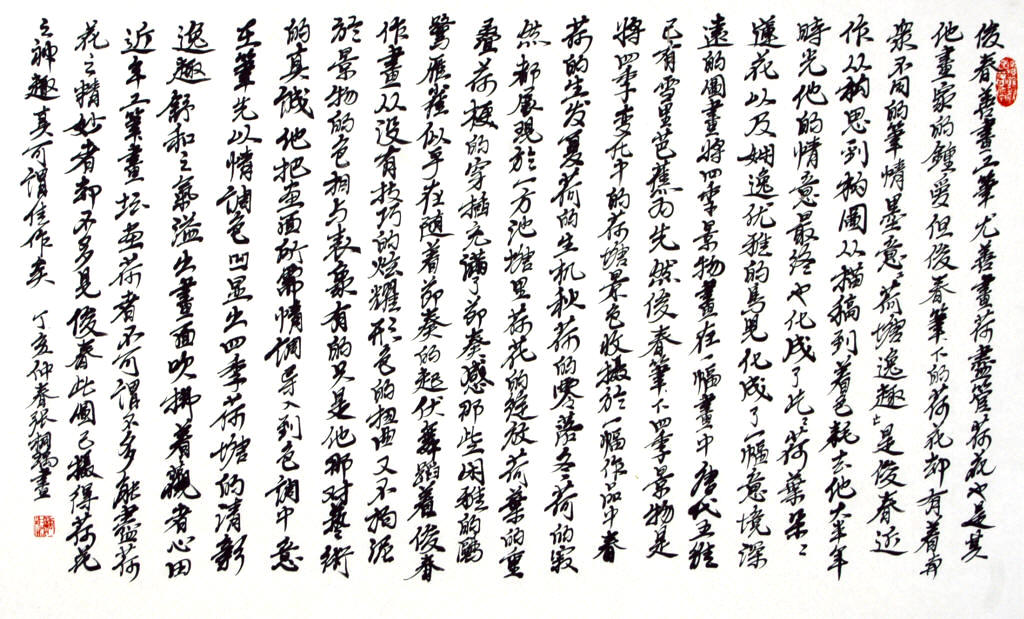 俊春善畫工筆尤善畫荷畫荷荷花也是其
他畫家的鍾愛但俊春筆下的荷花却有着與
衆不同的筆情墨意荷塘逸趣是俊春近
作从构思到构圖从描稿到着色耗去他大半年
時光他的情意最终也化成了片片荷葉朵朵
蓮花以及姻逸优雅的鳥兒化成了一幅意境深
遠的圖畫將四季景物畫在一幅畫中唐代王維
已有雪里芭蕉爲先然俊春筆下四季景物是
將四季变化中的荷塘景色收攝於一幅作品中春
荷的生发夏荷的生机秋荷的零落冬荷的寂
然都展現於一方池塘里荷花的绽放荷葉的重
叠荷梗的穿插充满了節奏感那些闲雅的鷗
鷺雁雀似乎在随着節奏的起伏舞蹈着俊春
作畫从没有技巧的炫耀形色的扭曲又不拘泥
於景物的色相与表象有的只是他那对藝術
的真誠他把畫面所需情调导入到色调中意
在筆先以情調色凹显出四季荷塘的清新
逸趣舒和之氣溢出畫面吹拂着觀者心田
近年工筆畫坛畫荷者不可謂不多能盡荷
花之精妙者却不多見俊春此圖已攝得荷花
之神趣真可謂佳作矣 丁亥仲春張桐瑀畫